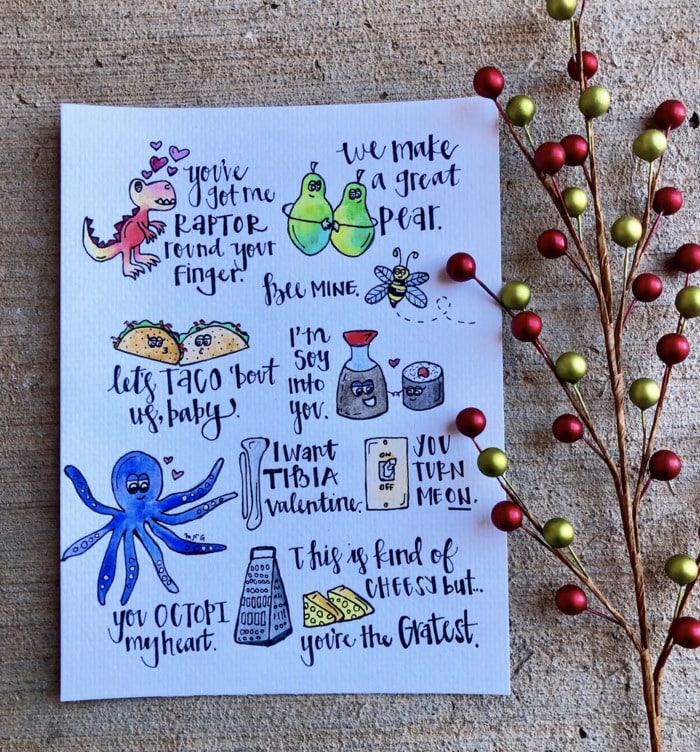 you've
got me
RAPTOR
round your
Finger.
we make
a great
pear.
Bee MINE.
let's TACO 'bout
us, baby.
I'm
SOY
into
you.
I want
TIBIA
valentine.
ON
OFF
YOU
TURN
ME ON.
you OCTOPI
my heart.
This is kind of
CHEESY but...
you're the Gratest.